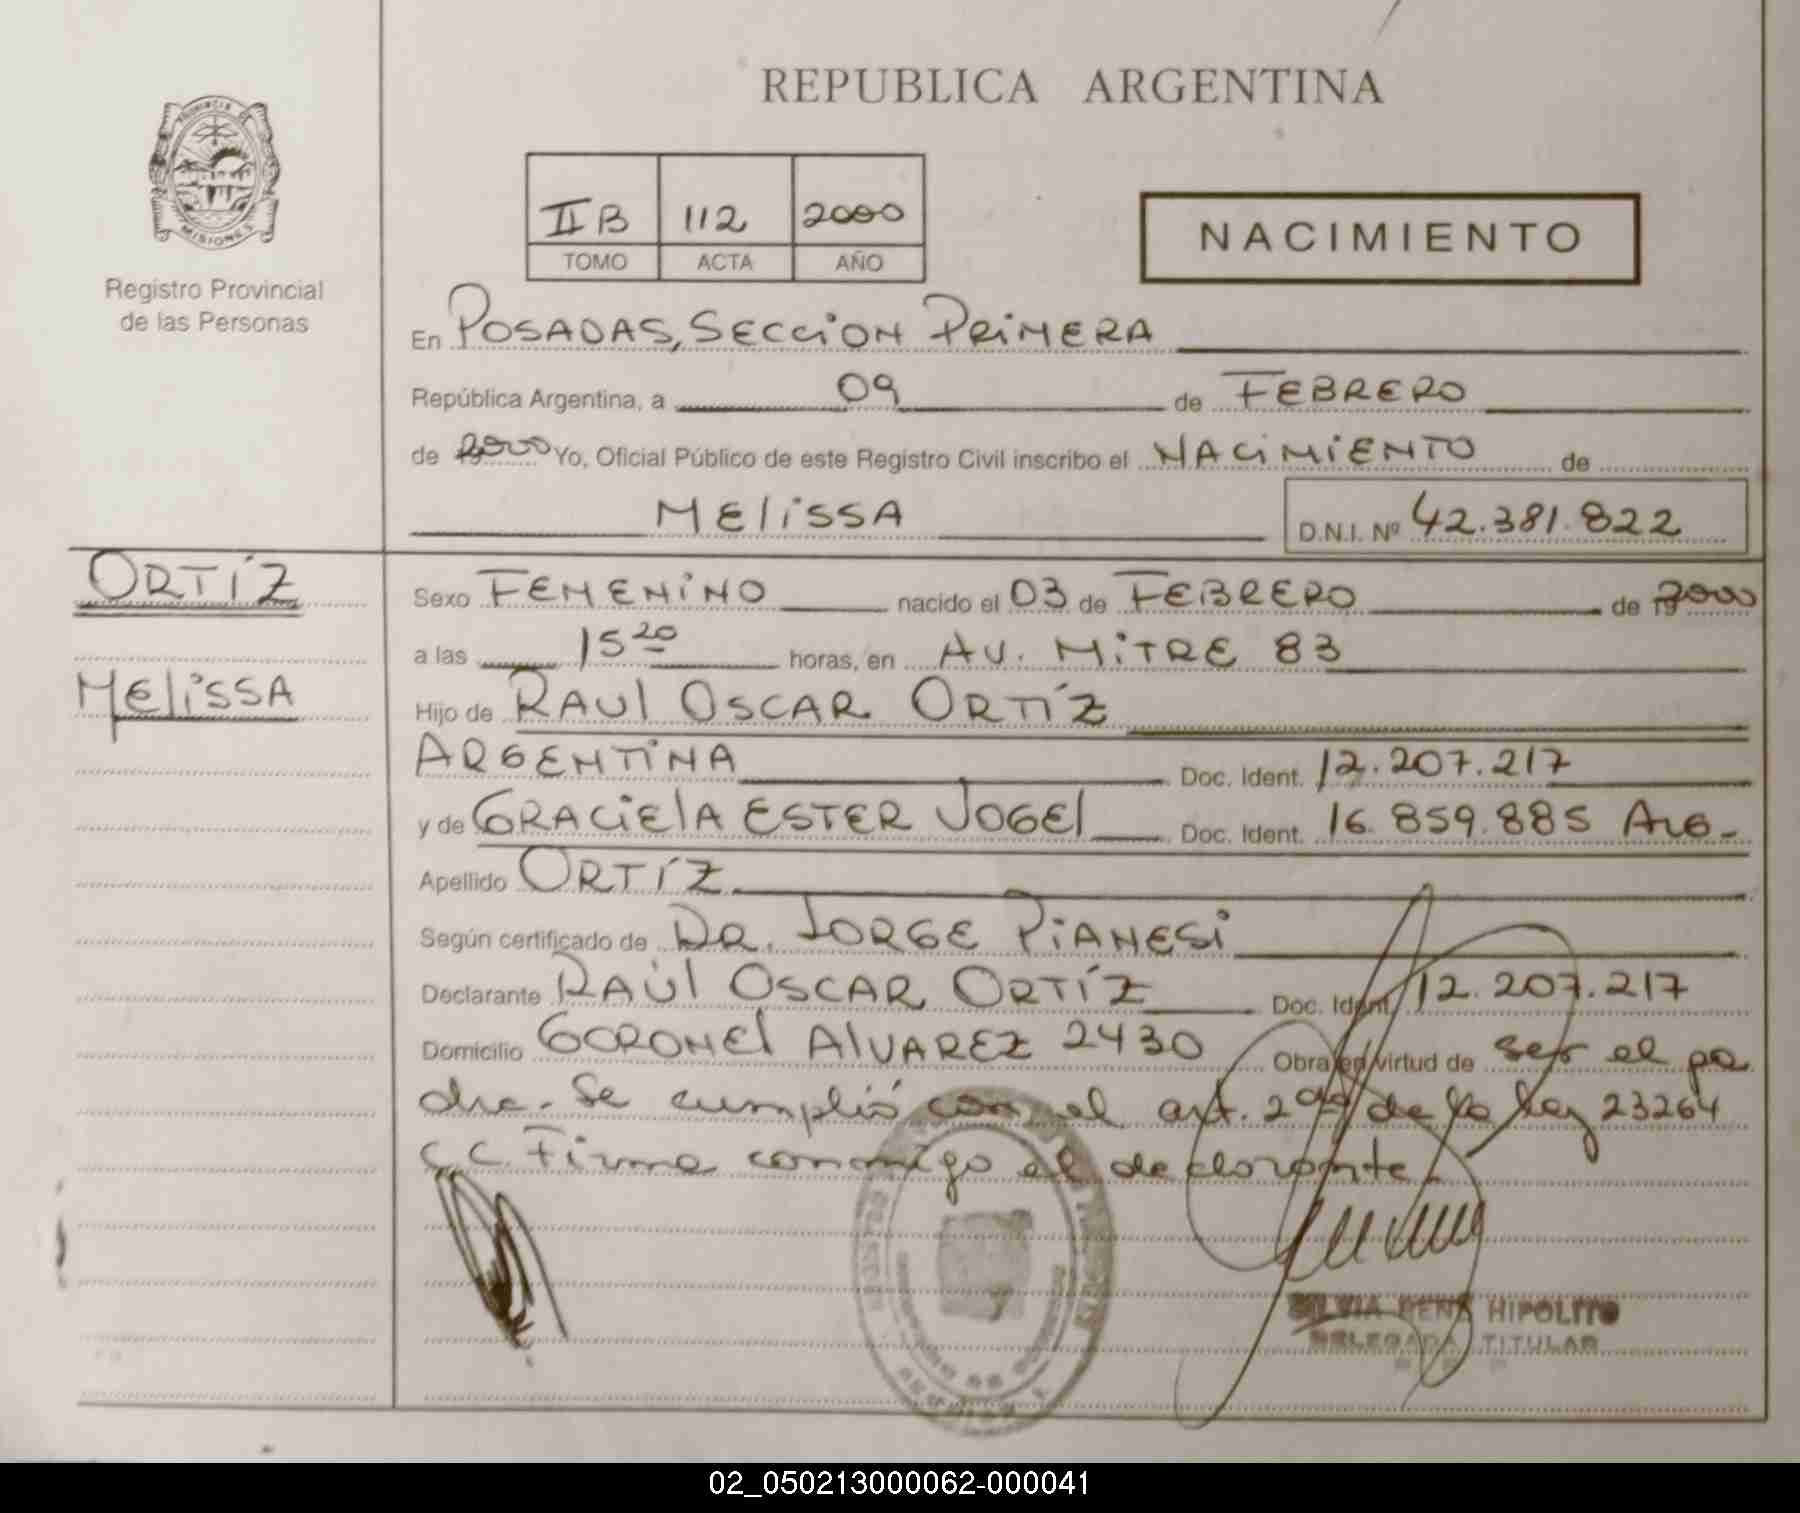 REPUBLICA ARGENTINA
PROVINCIA DE
MISIONES
Registro Provincial
de las Personas
II B 112 2000
TOMO ACTA AÑO
NACIMIENTO
En POSADAS, SECCION PRIMERA
República Argentina, a 09 de FEBRERO
de 2000 Yo, Oficial Público de este Registro Civil inscribo el NACIMIENTO de
MELISSA D.N.I. Nº 42.381.822
ORTÍZ
MELISSA
Sexo FEMENINO nacido el 03 de FEBRERO de 2000
a las 15 20 horas, en AV. MITRE 83
Hijo de RAUL OSCAR ORTÍZ
ARGENTINA Doc. Ident. 12.207.217
y de GRACIELA ESTER JOGEL Doc. Ident. 16.859.885 ARG-
Apellido ORTÍZ
Según certificado de DR. JORGE PIANESI
Declarante RAÚL OSCAR ORTÍZ Doc. Ident. 12.207.217
Domicilio CORONEL ALVAREZ 2430 Obra en virtud de ser el pa
dre. Se cumplió con el art. 2do de la ley 23264
C.C. Firma conmigo el declarante.
HIPOLITO
DELEGADA TITULAR
02_050213000062-000041